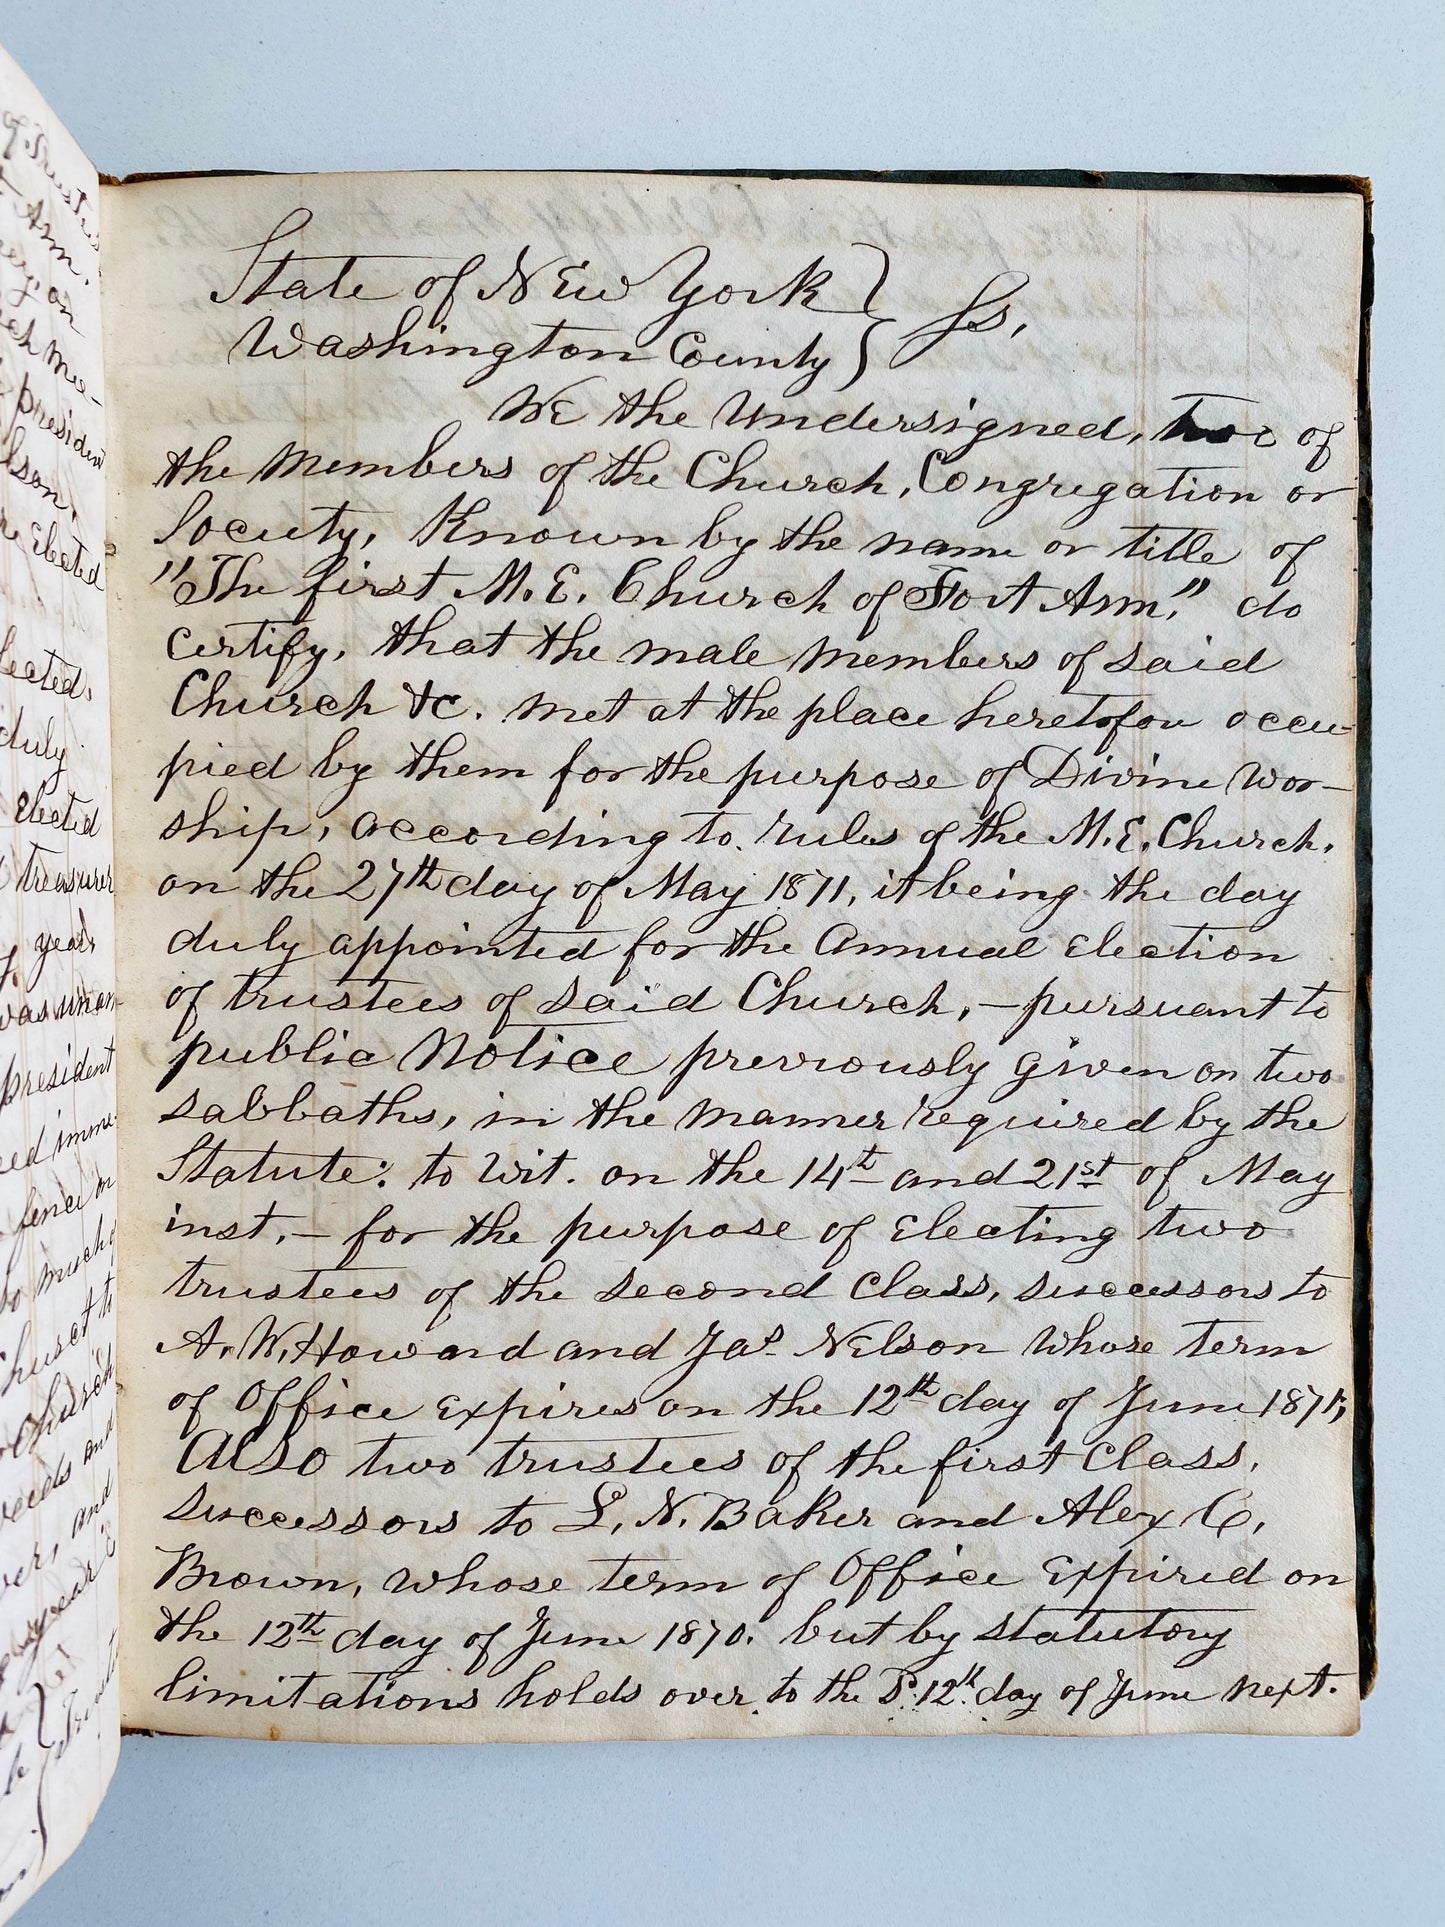 State of New York }
Washington County } Ss,
We the Undersigned, two of
the members of the Church, Congregation or
Society, Known by the name or title of
"The first M. E. Church of Fort Ann," do
certify, that the male members of said
Church &c. met at the place heretofore occu-
pied by them for the purpose of Divine Wor-
ship, according to rules of the M. E. Church.
on the 27th day of May 1871, it being the day
duly appointed for the Annual Election
of trustees of said Church, – pursuant to
public Notice previously given on two
sabbaths, in the manner required by the
Statute: to wit. on the 14th and 21st of May
inst. – for the purpose of Electing two
trustees of the second Class, successors to
A. W. Howard and Jas Nelson whose term
of Office Expires on the 12th day of June 1871;
Also two trustees of the first Class,
successors to L. N. Baker and Alex C,
Brown, whose term of Office Expired on
the 12th day of June 1870. but by statutory
limitations holds over to the 12th day of June next.
on
president
Elected
duly
Elected
treasurer
years
president
fence on
so much
Church
and